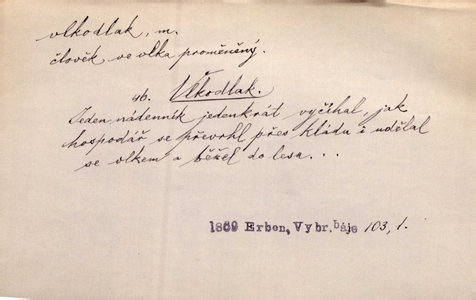 vlkodlak, m.
člověk ve vlka proměněný.
46. Vlkodlak.
Jeden nádenník jedenkrát vyčíhal, jak
hospodář se převrhl přes kládu i udělal
se vlkem a běžel do lesa...
1869 Erben, Vybr. báje 103, 1.